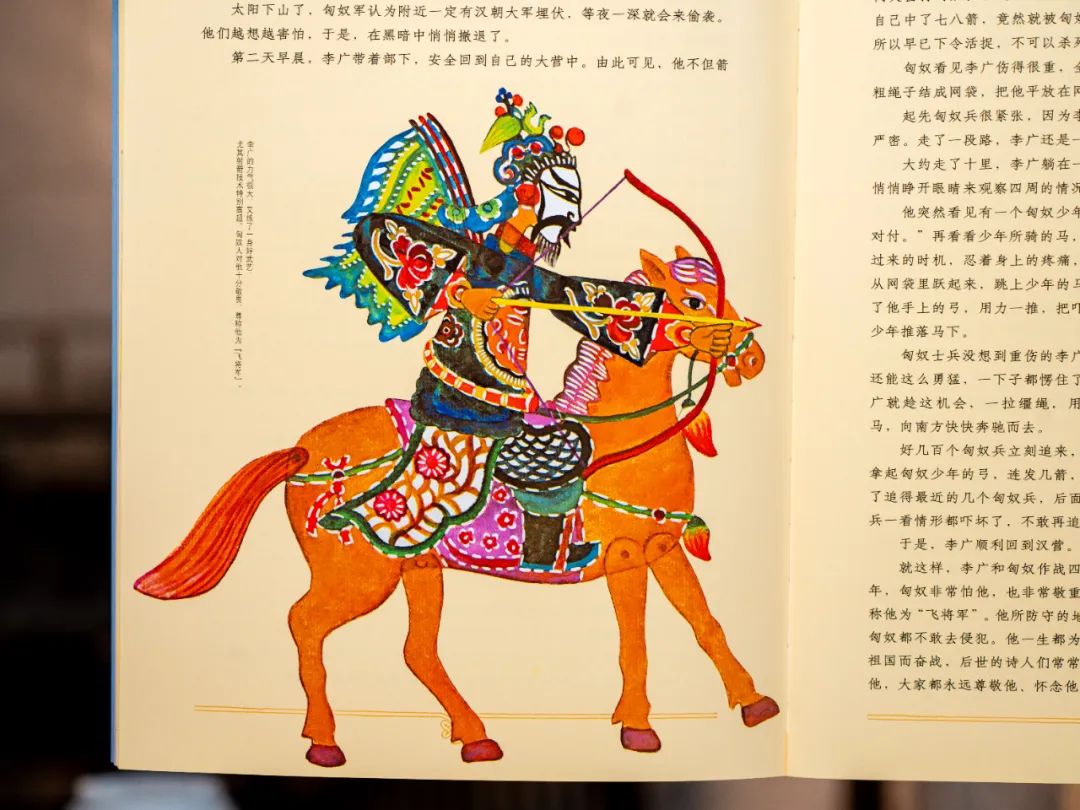 太阳下山了，匈奴军认为附近一定有汉朝大军埋伏，等夜一深就会来偷袭。
他们越想越害怕，于是，在黑暗中悄悄撤退了。
第二天早晨，李广带着部下，安全回到自己的大营中。由此可见，他不但箭
李广的力气很大，又练了一身好武艺
尤其射箭技术特别高超，匈奴人对他十分敬畏，尊称他为“飞将军”。
自己中了七八箭，竟然就被匈
所以早已下令活捉，不可以杀死
匈奴看见李广伤得很重，全
粗绳子结成网袋，把他平放在网
起先匈奴兵很紧张，因为李
严密。走了一段路，李广还是一
大约走了十里，李广躺在一
悄悄睁开眼睛来观察四周的情况
他突然看见有一个匈奴少年
对付。”再看看少年所骑的马，
过来的时机，忍着身上的疼痛，
从网袋里跃起来，跳上少年的马
了他手上的弓，用力一推，把吓
少年推落马下。
匈奴士兵没想到重伤的李广
还能这么勇猛，一下子都愣住了
广就趁这机会，一拉缰绳，用
马，向南方快快奔驰而去。
好几百个匈奴兵立刻追来，
拿起匈奴少年的弓，连发几箭，
了追得最近的几个匈奴兵，后面
兵一看情形都吓坏了，不敢再追
于是，李广顺利回到汉营。
就这样，李广和匈奴作战四
年，匈奴非常怕他，也非常敬重
称他为“飞将军”。他所防守的地
匈奴都不敢去侵犯。他一生都为
祖国而奋战，后世的诗人们常常
他，大家都永远尊敬他、怀念他